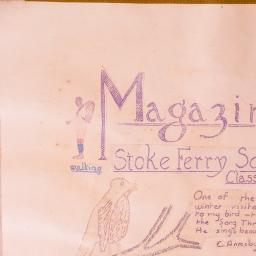 Magazin
walking
Stoke Ferry Sc
Class
One of the
winter visita
to my bird-t
the Song Thr
He sings beau
C. Annsb